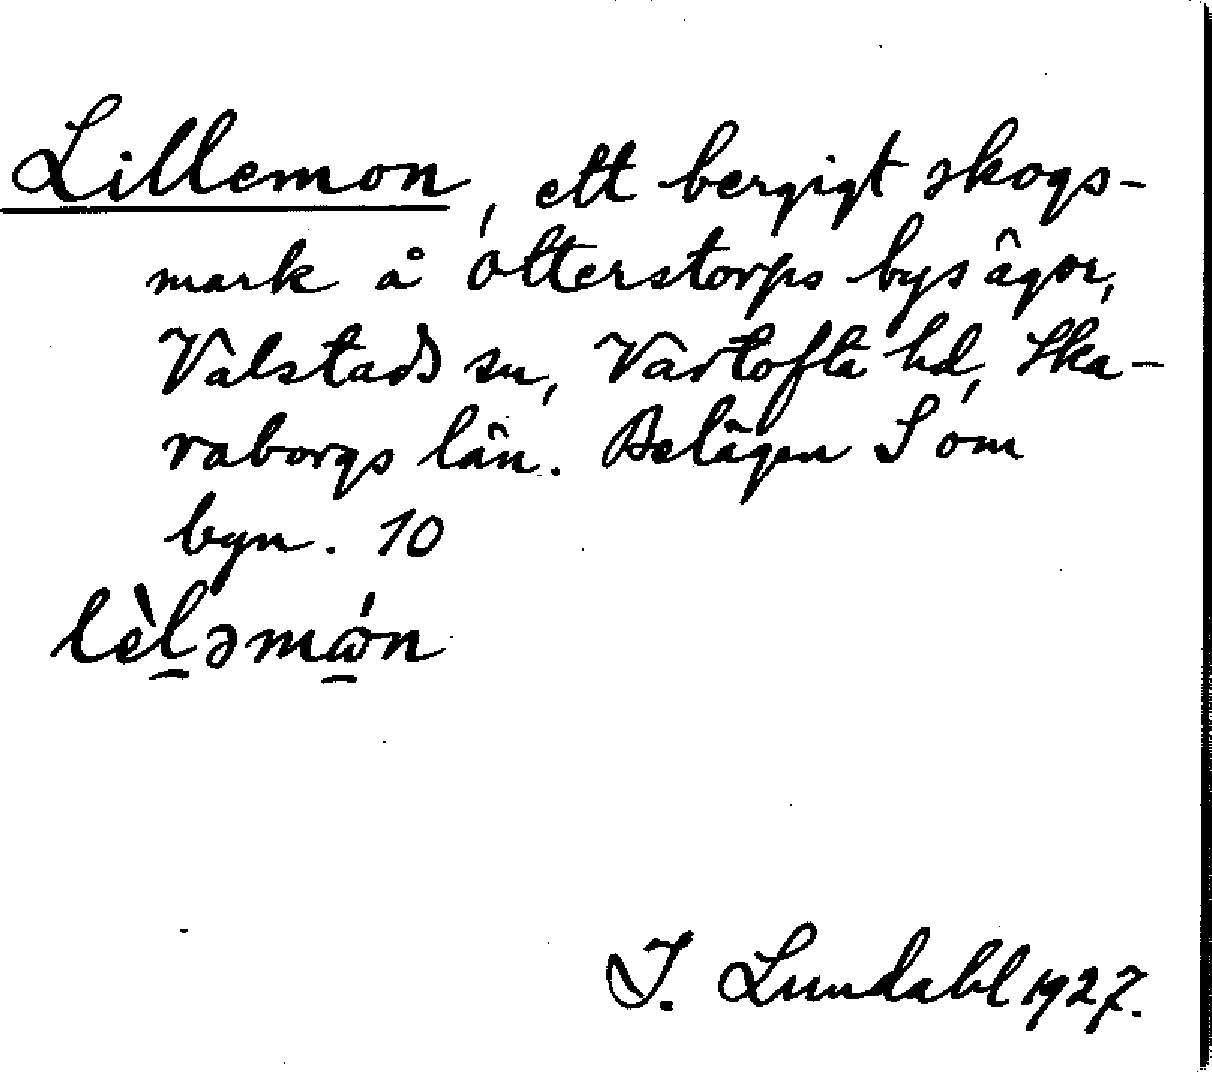 Lillemon, ett bergigt skogs-
mark å Otterstorps bys ägor,
Valstads sn, Vartofta hd, Ska-
raborgs län. Belägen S om
byn. 10
lèl̠əmɷ̠́n
I. Lundahl 1927.